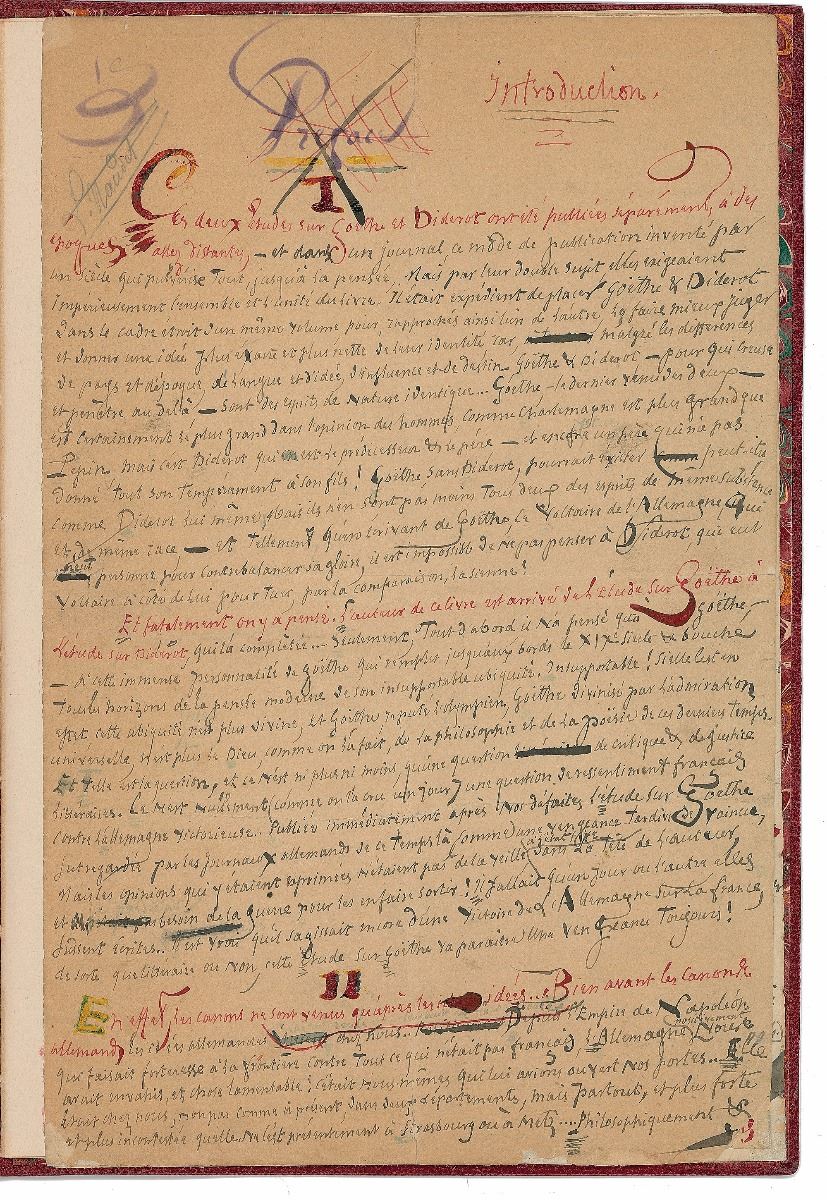 Préface
Introduction.
I
Ces deux Études sur Goëthe et Diderot ont été publiées séparément, à des
époques assez distantes, — et dans un journal ce mode de publication inventé par
un siècle qui pulvérise tout, jusqu'à la pensée. Mais par leur double sujet elles exigeaient
impérieusement l'ensemble et l'unité du livre. Il était expédient de placer Goëthe & Diderot
dans le cadre étroit d'un même volume pour, rapprochés ainsi l'un de l'autre, les faire mieux juger
et donner une idée plus exacte et plus nette de leur identité car malgré les différences
de pays et d'époque, de langue et d'idée, d'influence et de destin Goëthe & Diderot — pour qui creuse
et pénètre au delà — sont des esprits de nature identique... Goëthe — le dernier venu des deux —
est certainement le plus grand dans l'opinion des hommes, comme Charlemagne est plus grand que
Pepin. Mais c'est Diderot qui en est le prédécesseur & le père — et encore un père qui n'a pas
donné tout son tempérament à son fils! Goëthe, sans Diderot, pourrait exister peut-être
comme Diderot lui même, mais ils n'en sont pas moins tous deux des esprits de même substance
et de même race — et tellement qu'en écrivant de Goëthe, le Voltaire de l'Allemagne (qui
n'eut personne pour contrebalancer sa gloire, il est impossible de ne pas penser à Diderot, qui eut
Voltaire à côté de lui pour tuer, par la comparaison, la sienne!
Et fatalement on y a pensé. L'auteur de ce livre est arrivé de l'Étude sur Goëthe à
l'étude sur Diderot, qui la complète... Seulement, tout d'abord il n'a pensé qu'à Goëthe,
— à cette immense personnalité de Goëthe qui remplit jusqu'aux bords le XIXe siècle & bouche
tous les horizons de la pensée moderne de son insupportable ubiquité. Insupportable! Si elle l'est en
effet cette ubiquité n'est plus divine, et Goëthe réputé l'olympien, Goëthe divinisé par l'admiration
universelle n'est plus le Dieu, comme on l'a fait, de la philosophie et de la poésie de ces derniers temps.
Et telle est la question, et ce n'est ni plus ni moins, qu'une question de critique & de justice
littéraires. Ce n'est nullement, comme on l'a cru un jour, une question de ressentiment français
contre l'allemagne victorieuse. Publiée immédiatement après nos défaites, l'étude sur Goëthe
fut regardée par les journaux allemands de ce temps-là comme une vengeance tardive de vaincu,
mais les opinions qui y étaient exprimées n'étaient pas de la veille dans la tête de l'auteur
et besoin de la guerre pour les en faire sortir! Il fallait qu'un jour ou l'autre elles
fussent écrites. Il est vrai qu'il s'agissait encore d'une victoire de l'Allemagne sur la France,
de sorte que littéraire ou non, cette étude sur Goëthe va paraître une vengeance toujours!
II
En effet, les canons ne sont venus qu'après les idées... Bien avant les canons
allemands, les idées allemandes chez nous... Depuis l'Empire de Napoléon
qui faisait forteresse à la frontière contre tout ce qui n'était pas français, l'Allemagne nous
avait envahis, et chose lamentable! c'était nous mêmes qui lui avions ouvert nos portes... Elle
était chez nous, non pas comme à présent dans deux départements, mais partout, et plus forte
et plus incontestée qu'elle ne l'est présentement à Strasbourg ou à Metz..... Philosophiquement &